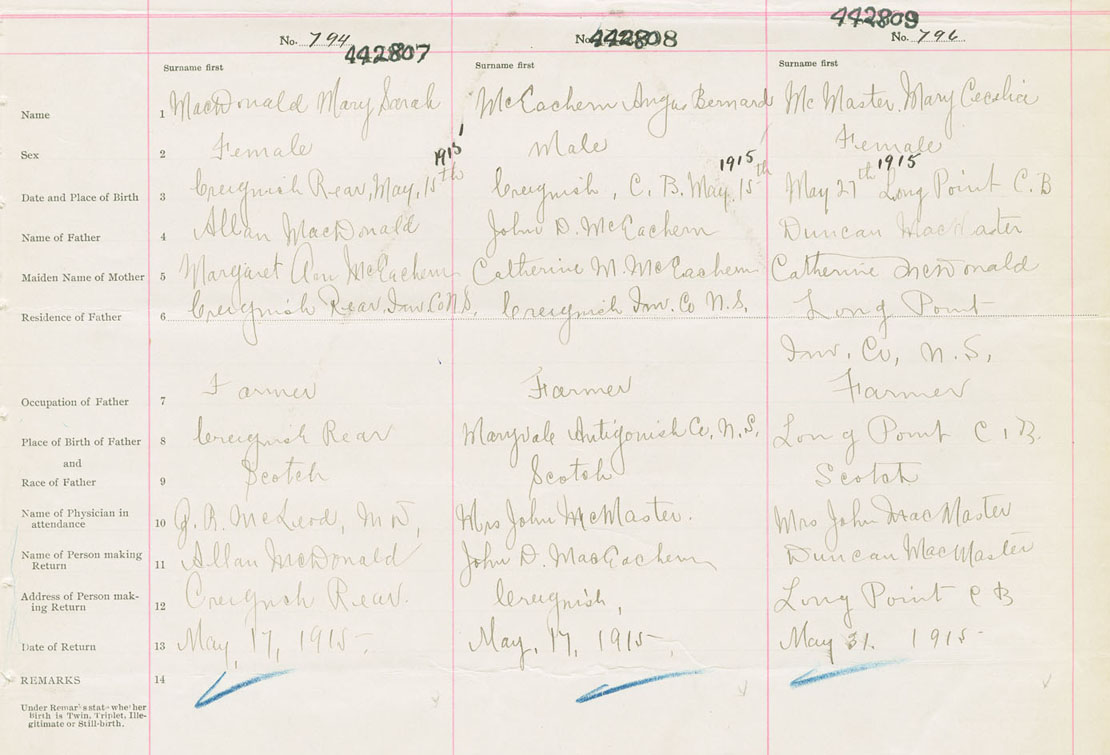 No. 794
442807
No.
442808
442809
No. 796
Surname first
Surname first
Surname first
Name 1 MacDonald Mary Sarah McEachern Angus Bernard Mc Master Mary Cecelia
Sex 2 Female Male Female
1915 1915 1915
Date and Place of Birth 3 Creignish Rear, May, 15th Creignish, C. B. May. 15th May 27th Long Point C. B
Name of Father 4 Allan MacDonald John D. McEachern Duncan MacMaster
Maiden Name of Mother 5 Margaret Ann McEachern Catherine M. McEachern Catherine McDonald
Residence of Father 6 Creignish Rear, Inv. Co N.S. Creignish Inv. Co N.S. Long Point
Inv. Co, N.S.
Occupation of Father 7 Farmer Farmer Farmer
Place of Birth of Father 8 Creignish Rear Maryvale Antigonish Co, N.S. Long Point C. B.
and
Race of Father 9 Scotch Scotch Scotch
Name of Physician in
attendance 10 McLeod, MD, Mrs John McMaster. Mrs John MacMaster
Name of Person making
Return 11 Allan McDonald John D. MacEachern Duncan MacMaster
Address of Person mak-
ing Return 12 Creignish Rear. Creignish, Long Point C B
Date of Return 13 May, 17, 1915 May, 17, 1915 May 31. 1915
REMARKS 14
Under Remarks state whether
Birth is Twin, Triplet, Ille-
gitimate or Still-birth.